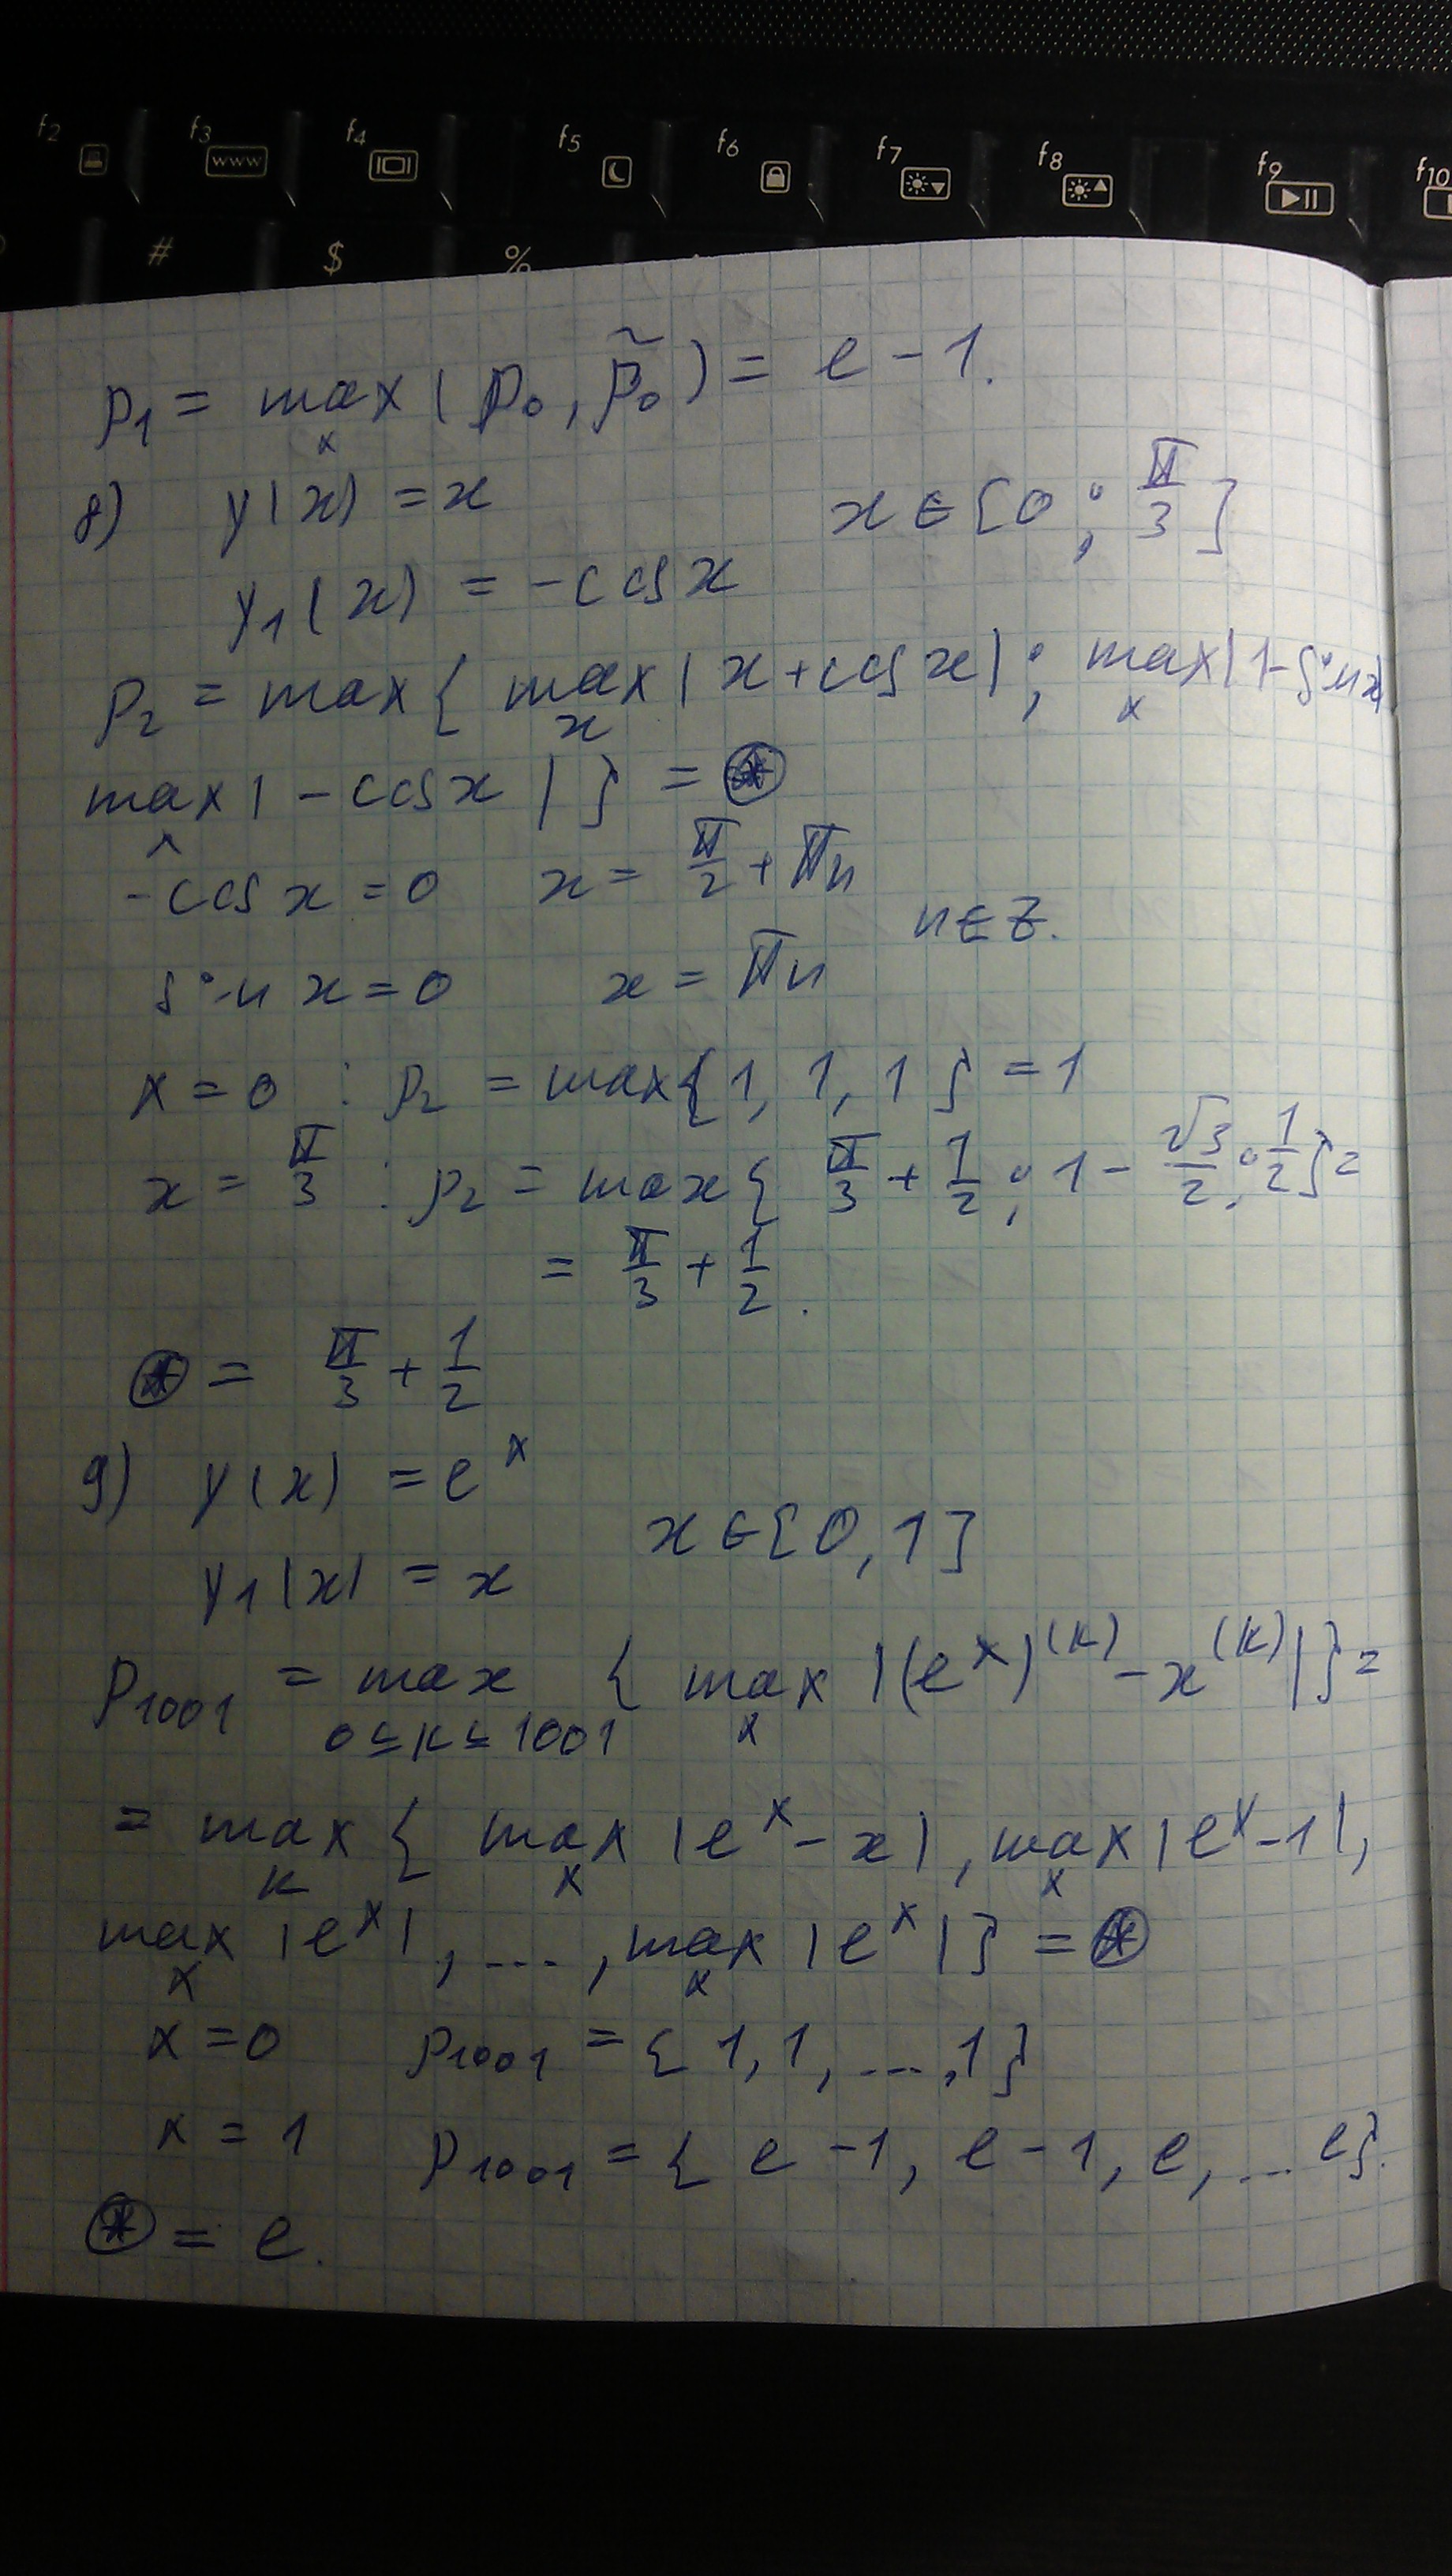 f2 f3 www f4 f5 f6 f7 f8 f9 f10
# $ %
ρ₁ = max (ρ₀, ρ̃₀) = e - 1.
x
8) y(x) = x x ∈ [0; π/3]
y₁(x) = -cos x
ρ₂ = max{ max | x + cos x | ; max | 1 - sin x|
x x
max | - cos x | } = ⊛
x
-cos x = 0 x = π/2 + πn
n ∈ Z.
sin x = 0 x = πn
x = 0 : ρ₂ = max{1, 1, 1} = 1
x = π/3 : ρ₂ = max{ π/3 + 1/2 ; 1 - √3/2 ; 1/2 } =
= π/3 + 1/2.
⊛ = π/3 + 1/2
9) y(x) = eˣ
x ∈ [0, 1]
y₁(x) = x
ρ₁₀₀₁ = max { max |(eˣ)⁽ᵏ⁾ - x⁽ᵏ⁾| } =
0≤k≤1001 x
= max { max |eˣ - x|, max |eˣ - 1|,
k x x
max |eˣ|, ..., max |eˣ| } = ⊛
x x
x = 0 ρ₁₀₀₁ = {1, 1, ..., 1}
x = 1 ρ₁₀₀₁ = {e - 1, e - 1, e, ... e}.
⊛ = e.